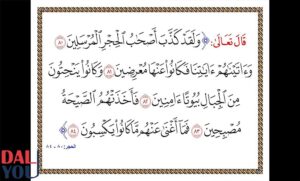 قال تعالى: ﴿ وَلَقَدْ كَذَّبَ أَصْحَٰبُ ٱلْحِجْرِ ٱلْمُرْسَلِينَ ٨٠
وَءَاتَيْنَٰهُمْ ءَايَٰتِنَا فَكَانُوا۟ عَنْهَا مُعْرِضِينَ ٨١ وَكَانُوا۟ يَنْحِتُونَ
مِنَ ٱلْجِبَالِ بُيُوتًا ءَامِنِينَ ٨٢ فَأَخَذَتْهُمُ ٱلصَّيْحَةُ
مُصْبِحِينَ ٨٣ فَمَآ أَغْنَىٰ عَنْهُم مَّا كَانُوا۟ يَكْسِبُونَ ٨٤ ﴾
الحجر: ٨٠ - ٨٤
DAL
YOU